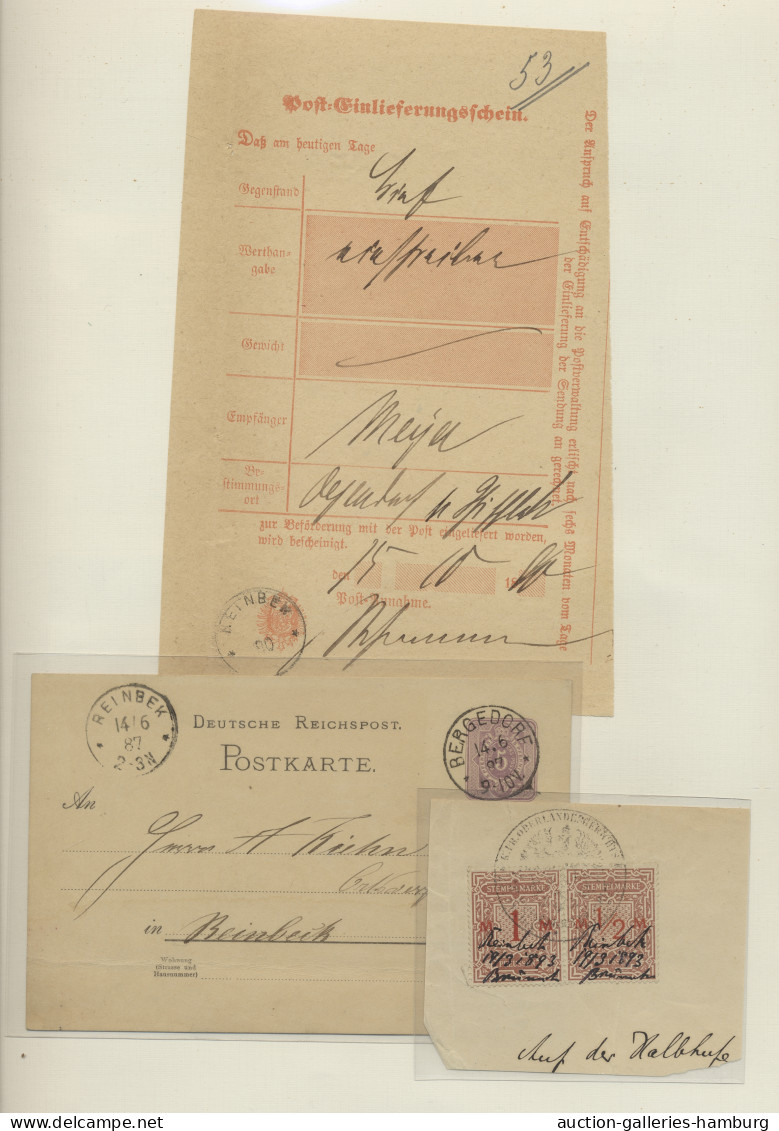 53
Post-Einlieferungsschein.
Daß am heutigen Tage
Gegenstand Brief
Werthan-
gabe
einschreiben
Gewicht
Empfänger Meyer
Be-
stimmungs-
ort
zur Beförderung mit der Post eingeliefert worden,
wird bescheinigt.
den 15 10 18 90
Post-Annahme.
Der Anspruch auf Entschädigung an die Postverwaltung erlischt nach sechs Monaten vom Tage
der Einlieferung der Sendung an gerechnet.
REINBEK
90
REINBEK
14/6
87
2-3N
DEUTSCHE REICHSPOST.
POSTKARTE.
BERGEDORF
14.6
87
An
Herrn A Kiehn
in Reinbeck
Wohnung
(Strasse und
Hausnummer)
STEMPELMARKE STEMPELMARKE
M 1 M M 1/2 M
Reinbek Reinbek
19/3 1893 19/3 1893
Auf der Halbhufe
*
auction-galleries-hamburg